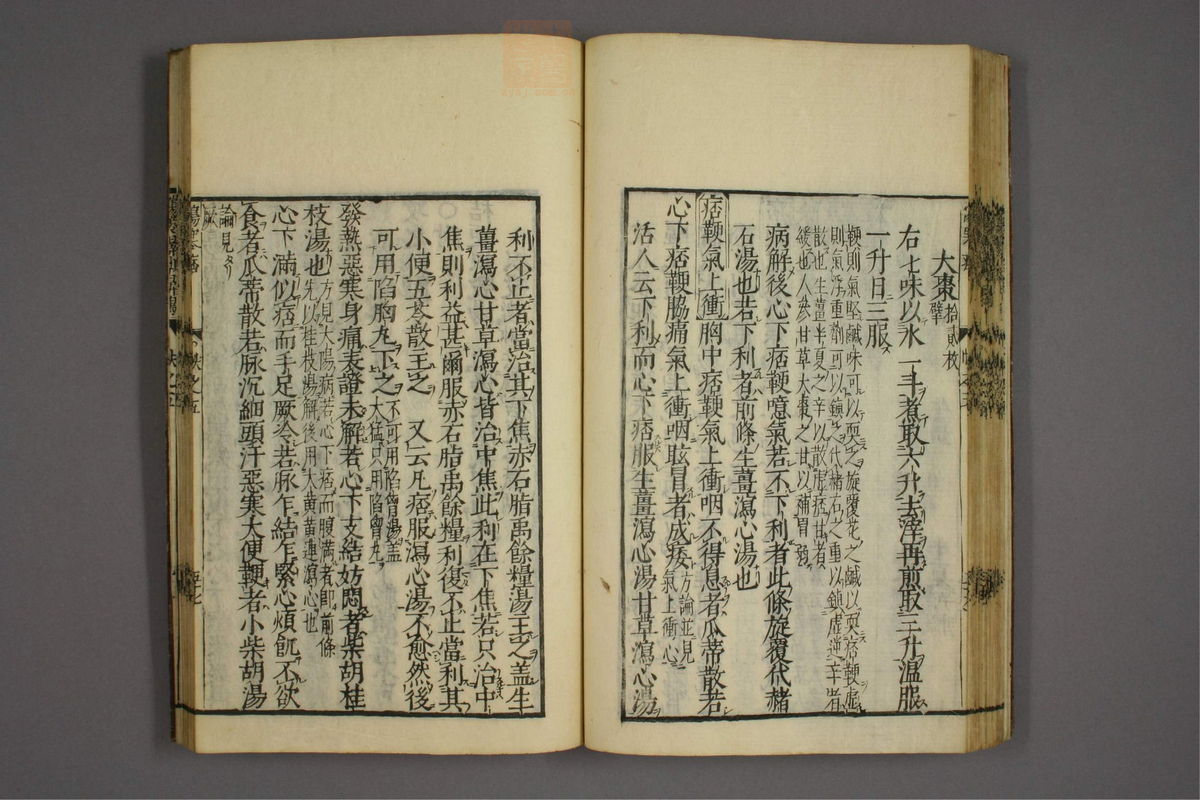 大棗擘拾貳枚
右七味以水一斗煮取六升去滓再煎取三升溫服
一升日三服
鞕則氣堅鹹味可以耎之旋覆花之鹹以耎痞鞕虛
則氣浮重劑可以鎮之代赭石之重以鎮虛逆辛者
散也生薑半夏之辛以散虛痞甘者
緩也人參甘草大棗之甘以補胃弱
病解後心下痞鞕噫氣若不下利者此條旋覆代赭
石湯也若下利者前條生薑瀉心湯也
痞鞕氣上衝胸中痞鞕氣上衝咽不得息者瓜蒂散若
心下痞鞕脇痛氣上衝咽眩冒者成痿方論並見氣上衝心
活人云下利而心下痞服生薑瀉心湯甘草瀉心湯
利不止者當治其下焦赤石脂禹餘糧湯主之盖生
薑瀉心甘草瀉心皆治中焦此利在下焦若只治中
焦則利益甚爾服赤石脂禹餘糧利復不止當利其
小便五苓散主之 又云凡痞服瀉心湯不愈然後
可用陷胸丸下之不可用陷胷湯盖大猛只用陷胷丸
發熱惡寒身痛表證未解若心下支結妨悶者柴胡桂
枝湯也方見大陽病若心下痞而腹滿者即前條先以桂枝湯解後用大黄黄連瀉心也
心下滿似痞而手足厥冷若脉乍結乍緊心煩飢不欲
食者瓜蒂散若脉沉細頭汗惡寒大便鞕者小柴胡湯
論見厥